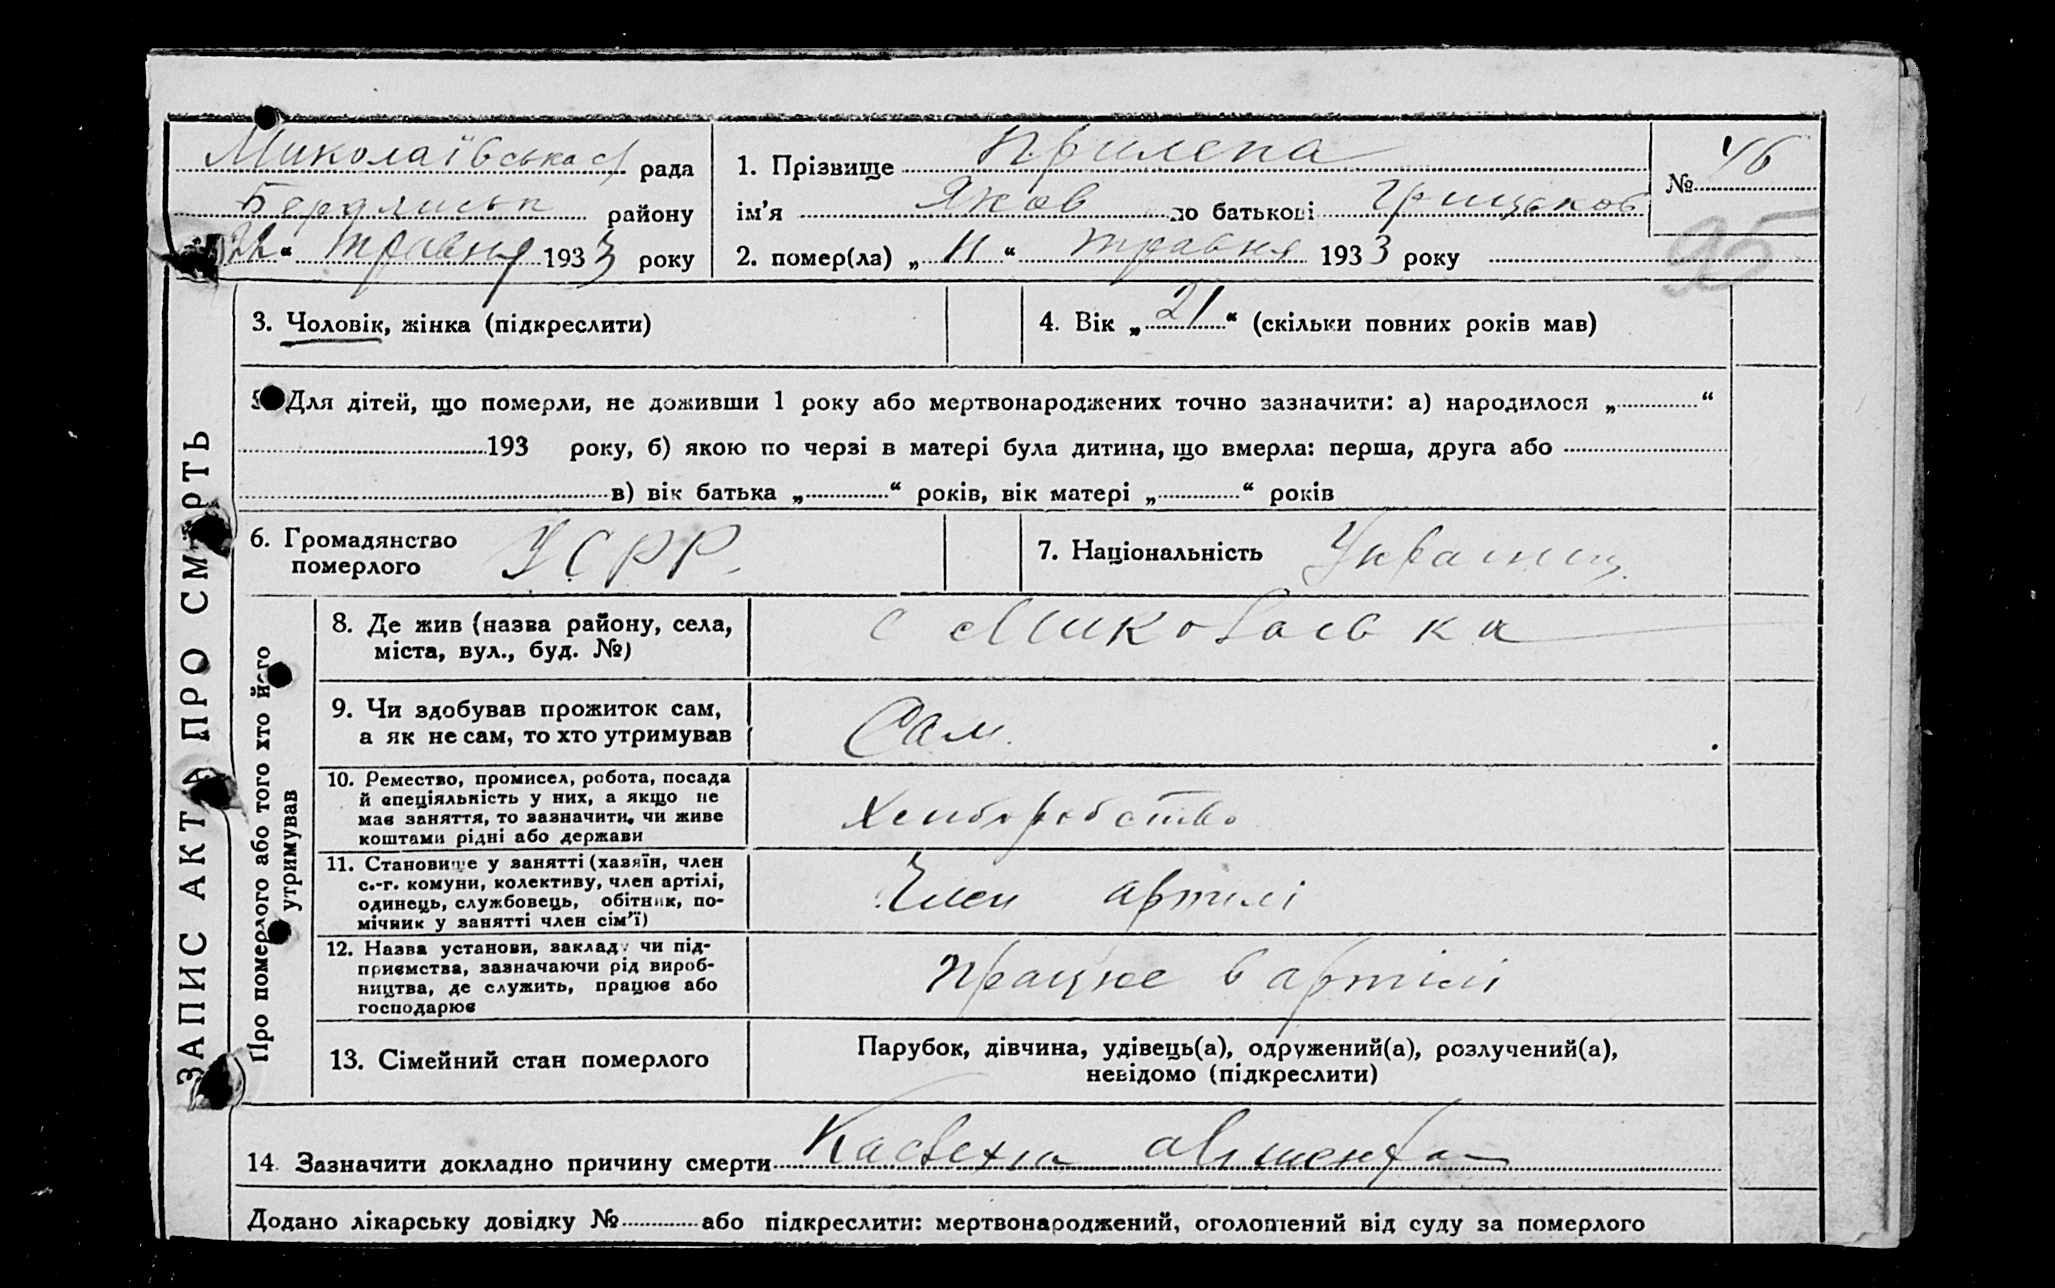 Миколаївська с/ рада
Бердянськ району
"22" травня 1933 року
1. Прізвище Прилепа
ім'я Яков по батькові Грицьков
2. помер(ла) „11“ травня 1933 року
№ 46
95
ЗАПИС АКТА ПРО СМЕРТЬ
3. Чоловік, жінка (підкреслити)
4. Вік „21“ (скільки повних років мав)
5. Для дітей, що померли, не доживши 1 року або мертвонароджених точно зазначити: а) народилося „ “
193 року, б) якою по черзі в матері була дитина, що вмерла: перша, друга або
в) вік батька „ “ років, вік матері „ “ років
6. Громадянство
померлого УСРР.
7. Національність Українец.
Про померлого або того хто його
утримував
8. Де жив (назва району, села,
міста, вул., буд. №)
с Миколаевка
9. Чи здобував прожиток сам,
а як не сам, то хто утримував
Сам.
10. Ремество, промисел, робота, посада
й спеціяльність у них, а якщо не
мав заняття, то зазначити, чи живе
коштами рідні або держави
Хлиборобство
11. Становище у занятті (хазяїн, член
с.-г. комуни, колективу, член артілі,
одинець, службовець, обітник, по-
мічник у занятті член сім'ї)
Член артилі
12. Назва установи, закладу чи під-
приємства, зазначаючи рід вироб-
ництва, де служить, працює або
господарює
Працює в артілі
13. Сімейний стан померлого
Парубок, дівчина, удівець(а), одружений(а), розлучений(а),
невідомо (підкреслити)
14. Зазначити докладно причину смерти
Додано лікарську довідку № або підкреслити: мертвонароджений, оголошений від суду за померлого